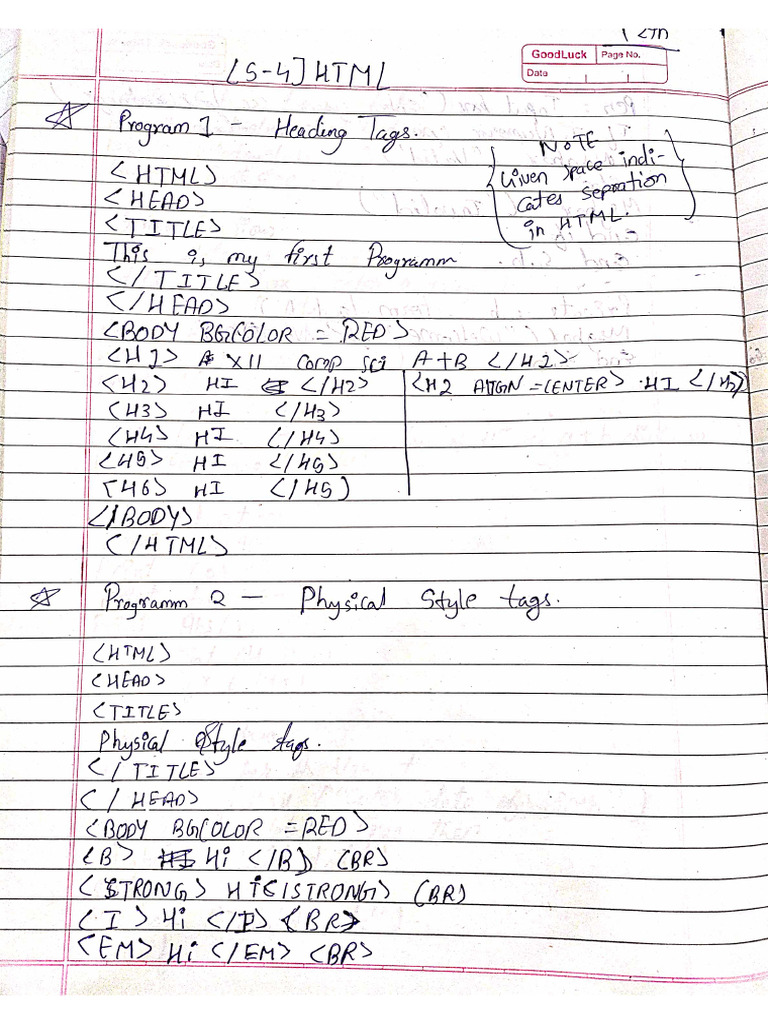 12th
GoodLuck Page No.
Date
[S-4] HTML
Program 1 - Heading Tags.
NOTE
Given space indi-
cates sepration
in HTML.
<HTML>
<HEAD>
<TITLE>
This is my first Programm
</TITLE>
</HEAD>
<BODY BGCOLOR = RED>
<H1> XII comp sci A+B </H1>
<H2> HI </H2> <H2 ALIGN = CENTER> HI </H2>
<H3> HI </H3>
<H4> HI </H4>
<H5> HI </H5>
<H6> HI </H5>
</BODY>
</HTML>
Programm 2 - Physical Style tags.
<HTML>
<HEAD>
<TITLE>
Physical Style tags.
</TITLE>
</HEAD>
<BODY BGCOLOR = RED>
<B> Hi </B> <BR>
<STRONG> Hi </STRONG> <BR>
<I> Hi </I> <BR>
<EM> Hi </EM> <BR>